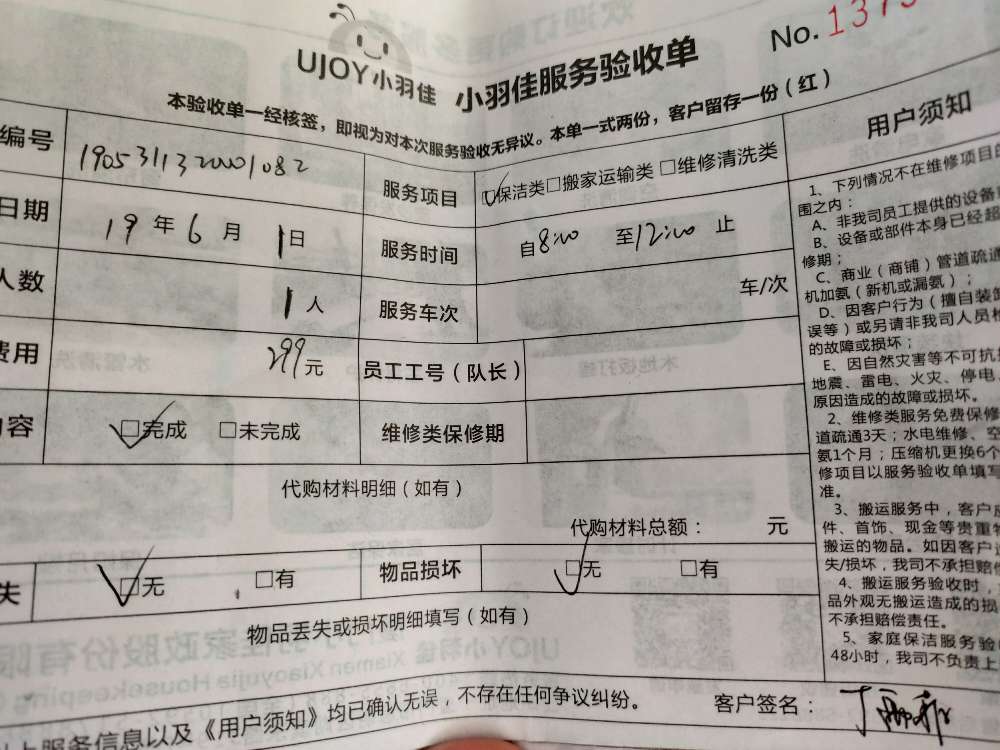 UJOY小羽佳 小羽佳服务验收单
No. 137
本验收单一经核签，即视为对本次服务验收无异议。本单一式两份，客户留存一份（红）
编号 服务项目 保洁类 □搬家运输类 □维修清洗类
日期 19年6月1日 服务时间 自8:00 至12:00 止
人数 1人 服务车次 车/次
费用 299元 员工工号（队长）
容 □完成 □未完成 维修类保修期
代购材料明细（如有）
代购材料总额： 元
失 □无 □有 物品损坏 □无 □有
物品丢失或损坏明细填写（如有）
上服务信息以及《用户须知》均已确认无误，不存在任何争议纠纷。 客户签名：
用户须知
1、下列情况不在维修项目的
围之内：
A、非我司员工提供的设备
B、设备或部件本身已经超
修期；
C、商业（商铺）管道疏通
机加氨（新机或漏氨）；
D、因客户行为（擅自装卸
误等）或另请非我司人员
的故障或损坏；
E、因自然灾害等不可抗
地震、雷电、火灾、停电、
原因造成的故障或损坏。
2、维修类服务免费保修
道疏通3天；水电维修、空
氨1个月；压缩机更换6个
修项目以服务验收单填写
准。
3、搬运服务中，客户应
件、首饰、现金等贵重物
搬运的物品。如因客户
失/损坏，我司不承担赔偿
4、搬运服务验收时，
品外观无搬运造成的损
不承担赔偿责任。
5、家庭保洁服务验
48小时，我司不负责上